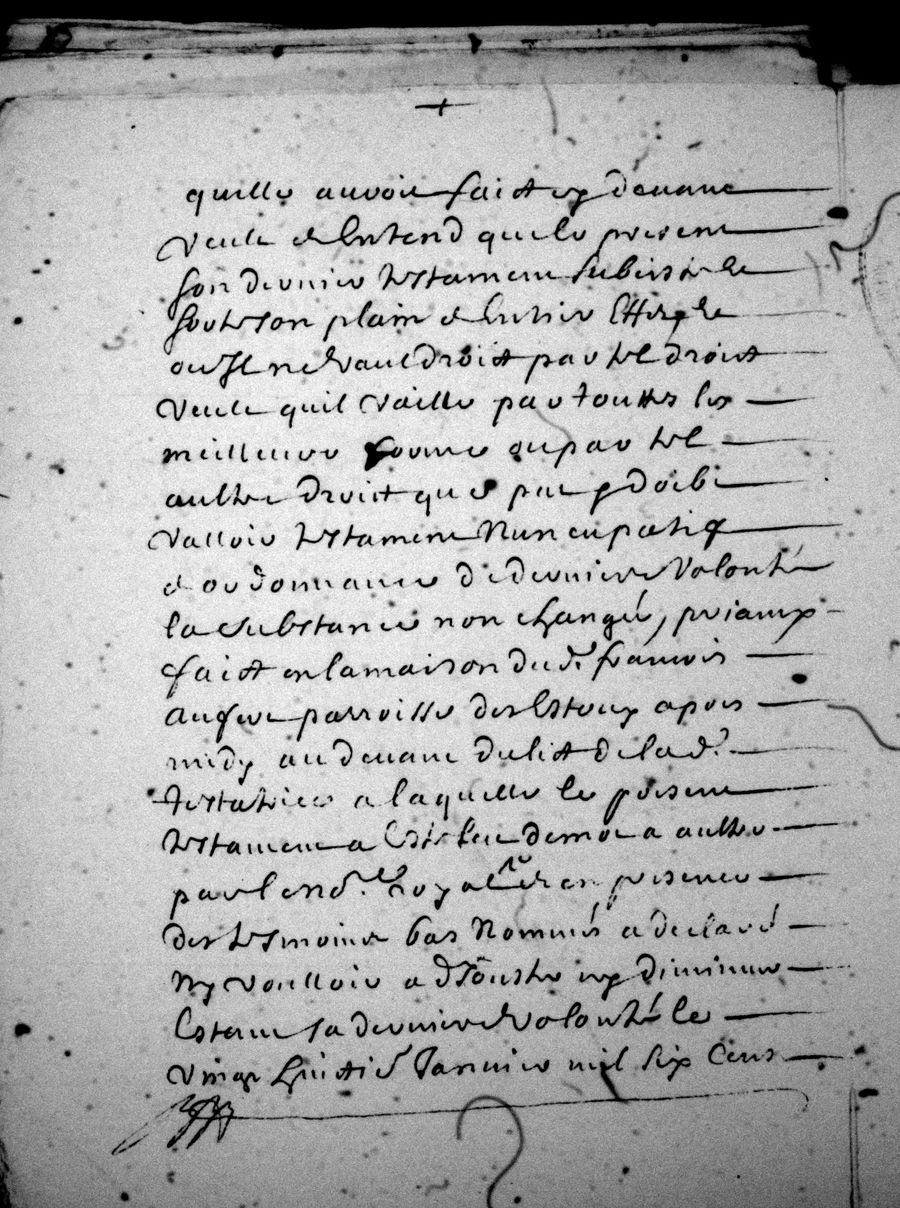 quelle auroit faict cy devant
veult et entend que le present
son dernier testament subcis
sorte son plain et entier
ou Il ne vauldroict par tel droict
veult quil vaille par touttes les
meilleure forme ou par tel
aultre droict que et doibt
valloir testament Nuncupatif
et ordonnance de derniere volonté
la substance non changée,
faict en la maison dud. françois
parroisse des apres
midy au devant du lict de lad.
testatrice a laquelle le present
testament a Esté leu demot a aultre
par le no.re Royal et en presence
des tesmoins bas Nommés a declaré
Ny voulloir adJouster ny diminuer
Estant sa derniere volonté le
vingt huictie Janvier mil six Cens